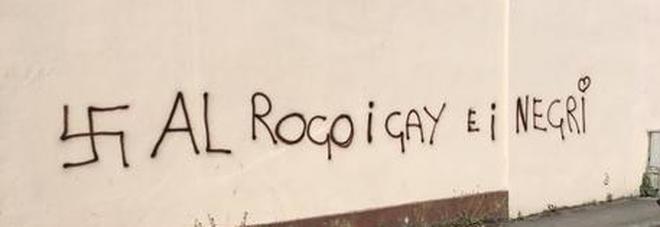 AL ROGO i GAY E i NEGRi